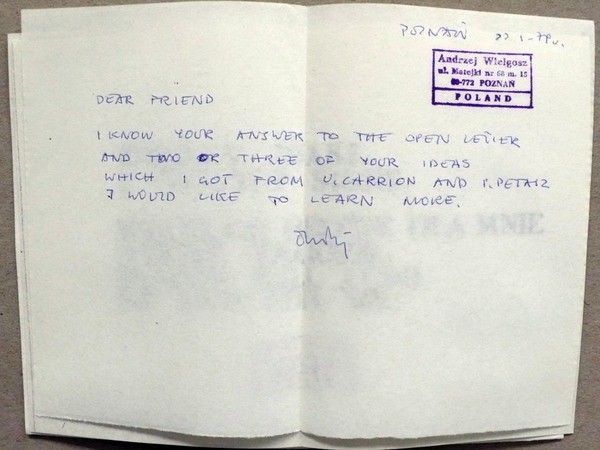 POZNAŃ
Andrzej Wielgosz
ul. Matejki nr 68 m. 15
60-772 POZNAŃ
POLAND
DEAR FRIEND
I KNOW YOUR ANSWER TO THE OPEN LETTER
AND TWO OR THREE OF YOUR IDEAS
WHICH I GOT FROM U. CARRION AND P. PETASZ
I WOULD LIKE TO LEARN MORE.